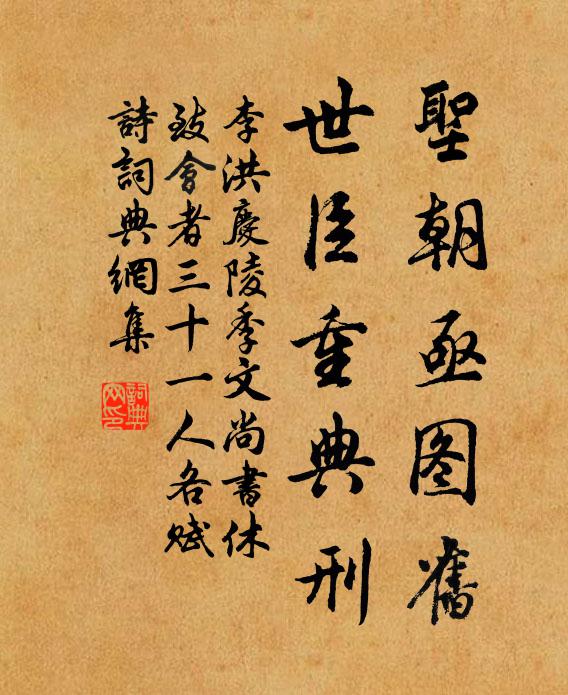 聖朝亟图舊
世臣重典刑
李洪慶陵季文尚書休
致會者三十一人各赋
詩詞典網集
詞典
网印